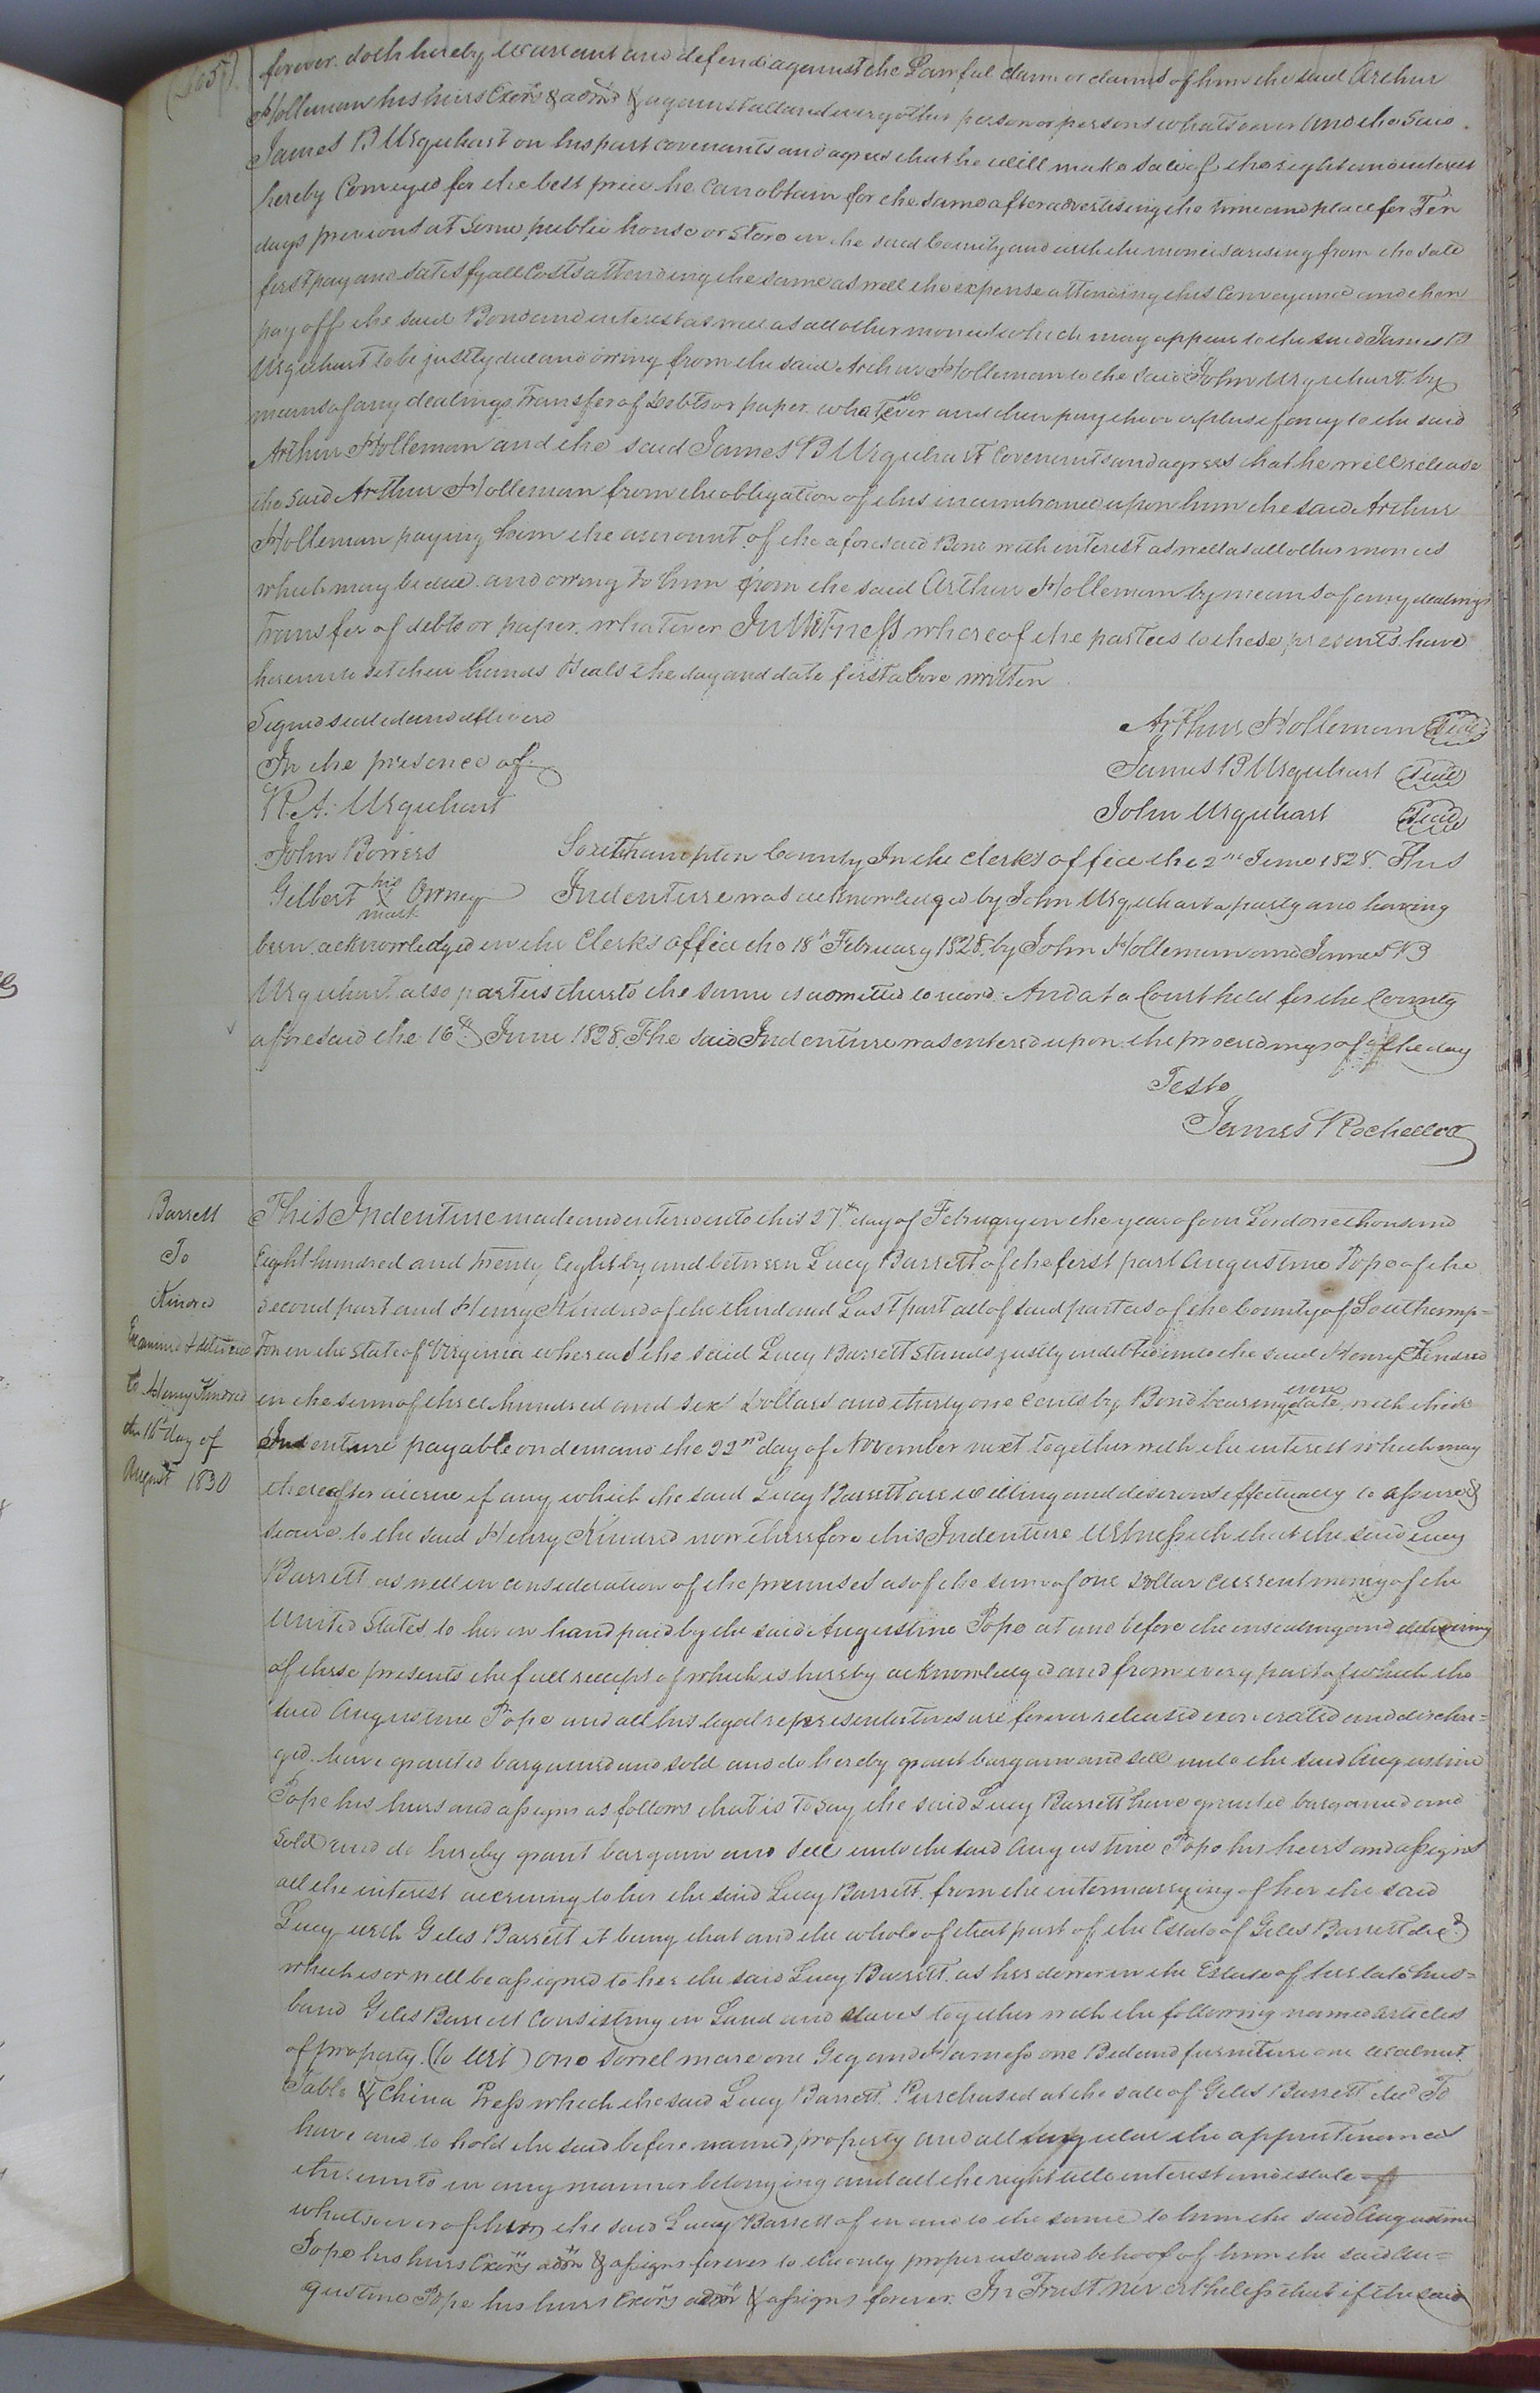 forever. doth hereby warrant and defend against the Lawful claim or claims of him the said Arthur
Holleman his heirs Exors & admrs & against all and every other person or persons whatsoever And the said
James B Urquhart on his part covenants and agrees that he will make sale of the right and interest
hereby Conveyed for the best price he can obtain for the same after advertising the time and place for Ten
days previous at Some public house or Store in the said County and with the monies arising from the sale
first pay and satisfy all Costs attending the same as well the expense attending this Conveyance and then
pay off the said Bond and interest as well as all other monies which may appear to the said James B
Urquhart to be justly due and owing from the said Arthur Holleman to the said John Urquhart by
means of any dealings Transfer of Debts or paper whatsoever and then pay the overplus if any to the said
Arthur Holleman and the said James B Urquhart Covenants and agrees that he will release
the said Arthur Holleman from the obligation of this incumbrance upon him the said Arthur
Holleman paying him the amount of the aforesaid Bond with interest as well as all other monies
which may be due and owing to him from the said Arthur Holleman by means of any dealings
Transfer of debts or paper. whatever In Witness whereof the parties to these presents have
hereunto set their hands & seals the day and date first above written
Signed sealed and delivered
Arthur Holleman Seal
In the presence of
James B Urquhart Seal
R. A. Urquhart
John Urquhart Seal
John Bowers
Southampton County In the clerks office the 2nd June 1828. This
Gilbert his X mark Orney Indenture was acknowledged by John Urquhart a party and having
been acknowledged in the Clerks office the 18th February 1828. by John Holleman and James B
Urquhart also parties thereto the same is admitted to record. And at a Court held for the County
aforesaid the 16th June 1828. The said Indenture was entered upon the proceedings of the day
Teste
James Rochelle
Barrett
To
Kindred
Examined & delivered
to Henry Kindred
the 16th day of
August 1830
This Indenture made and entered into this 27th day of February in the year of our Lord one thousand
Eight hundred and twenty Eight by and between Lucy Barrett of the first part Augustine Pope of the
second part and Henry Kindred of the third and Last part all of said parties of the County of Southamp=
ton in the State of Virginia whereas the said Lucy Barrett stands justly indebted unto the said Henry Kindred
in the sum of three hundred and six Dollars and thirty one Cents by Bond bearing even date with this
Indenture payable on demand the 22nd day of November next together with the interest which may
thereafter accrue if any which the said Lucy Barrett are willing and desirous effectually to assure &
secure to the said Henry Kindred now therefore this Indenture Witnesseth that the said Lucy
Barrett as well in consideration of the premises as of the sum of one Dollar current money of the
United States to her in hand paid by the said Augustine Pope at and before the ensealing and delivering
of these presents the full receipt of which is hereby acknowledged and from every part of which the
said Augustine Pope and all his legal representatives are forever released exonerated and dischar=
ged. have granted bargained and sold and do hereby grant bargain and sell unto the said Augustine
Pope his heirs and assigns as follows that is to say the said Lucy Barrett have granted bargained and
sold and do hereby grant bargain and sell unto the said Augustine Pope his heirs and assigns
all the interest accruing to her the said Lucy Barrett from the intermarrying of her the said
Lucy with Giles Barrett it being that and the whole of that part of the Estate of Giles Barrett decd
which is or will be assigned to her the said Lucy Barrett as her dower in the Estate of her late hus=
band Giles Barrett Consisting in Land and slaves together with the following named articles
of property. (to Wit) one Sorrel mare one Gig and Harness one Bed and furniture one walnut
Table & China Press which the said Lucy Barrett Purchased at the sale of Giles Barrett decd To
have and to hold the said before named property and all singular the appurtenances
thereunto in any manner belonging and all the right title interest and estate
whatsoever of her the said Lucy Barrett of in and to the same to him the said Augustine
Pope his heirs Exors admr & assigns forever to the only proper use and behoof of him the said Au=
gustine Pope his heirs Exors admr & assigns forever. In Trust nevertheless that if the said